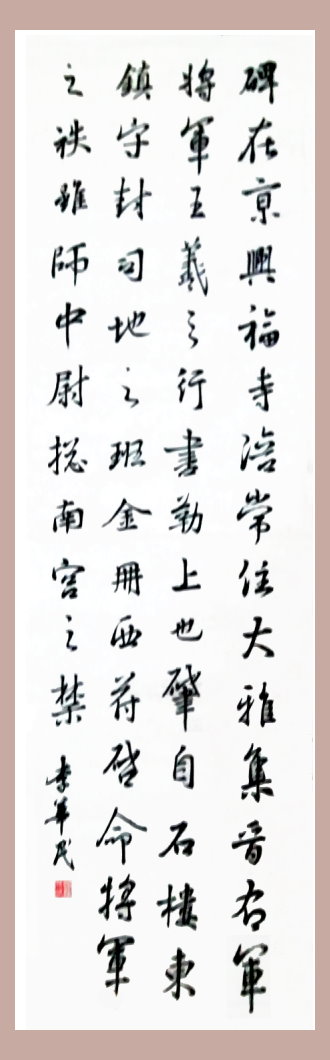 碑在京興福寺涪常住大雅集晋右軍
將軍王羲之行書勒上也肇自石樓東
鎮守封司地之班金冊西符啓命將軍
之袟雖師中尉揔南宮之禁
李華民